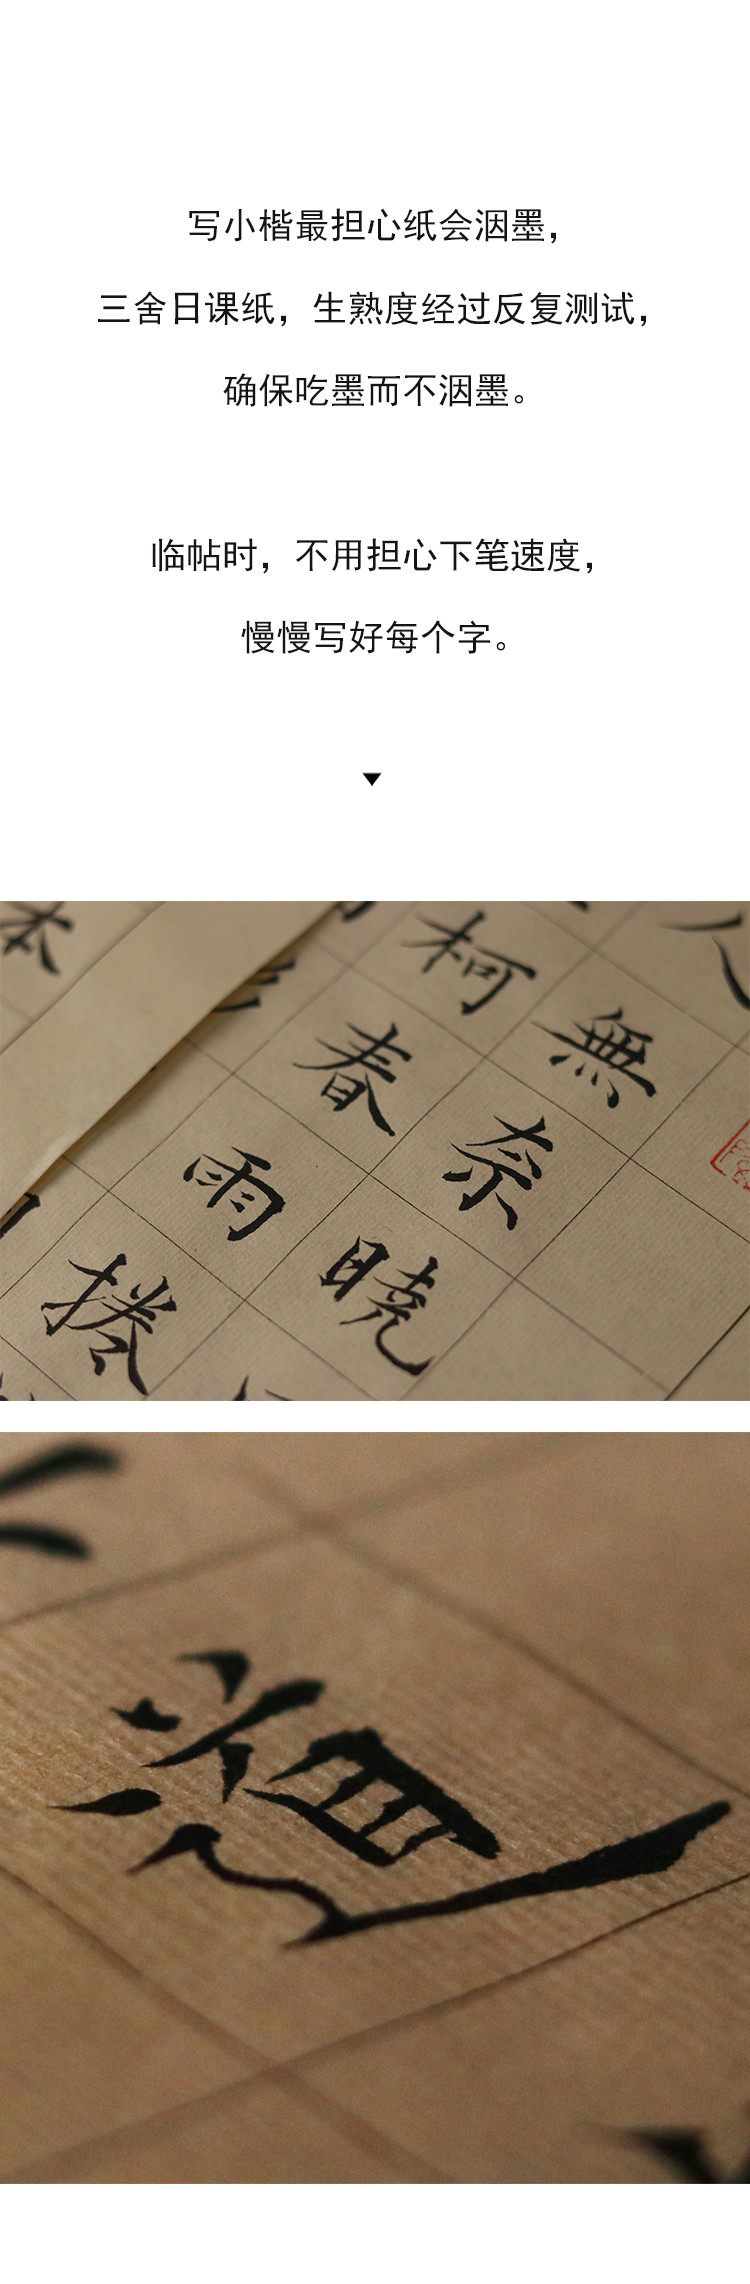 写小楷最担心纸会洇墨，
三舍日课纸，生熟度经过反复测试，
确保吃墨而不洇墨。
临帖时，不用担心下笔速度，
慢慢写好每个字。
人
無奈
柯
春曉
雨
捲
本
道